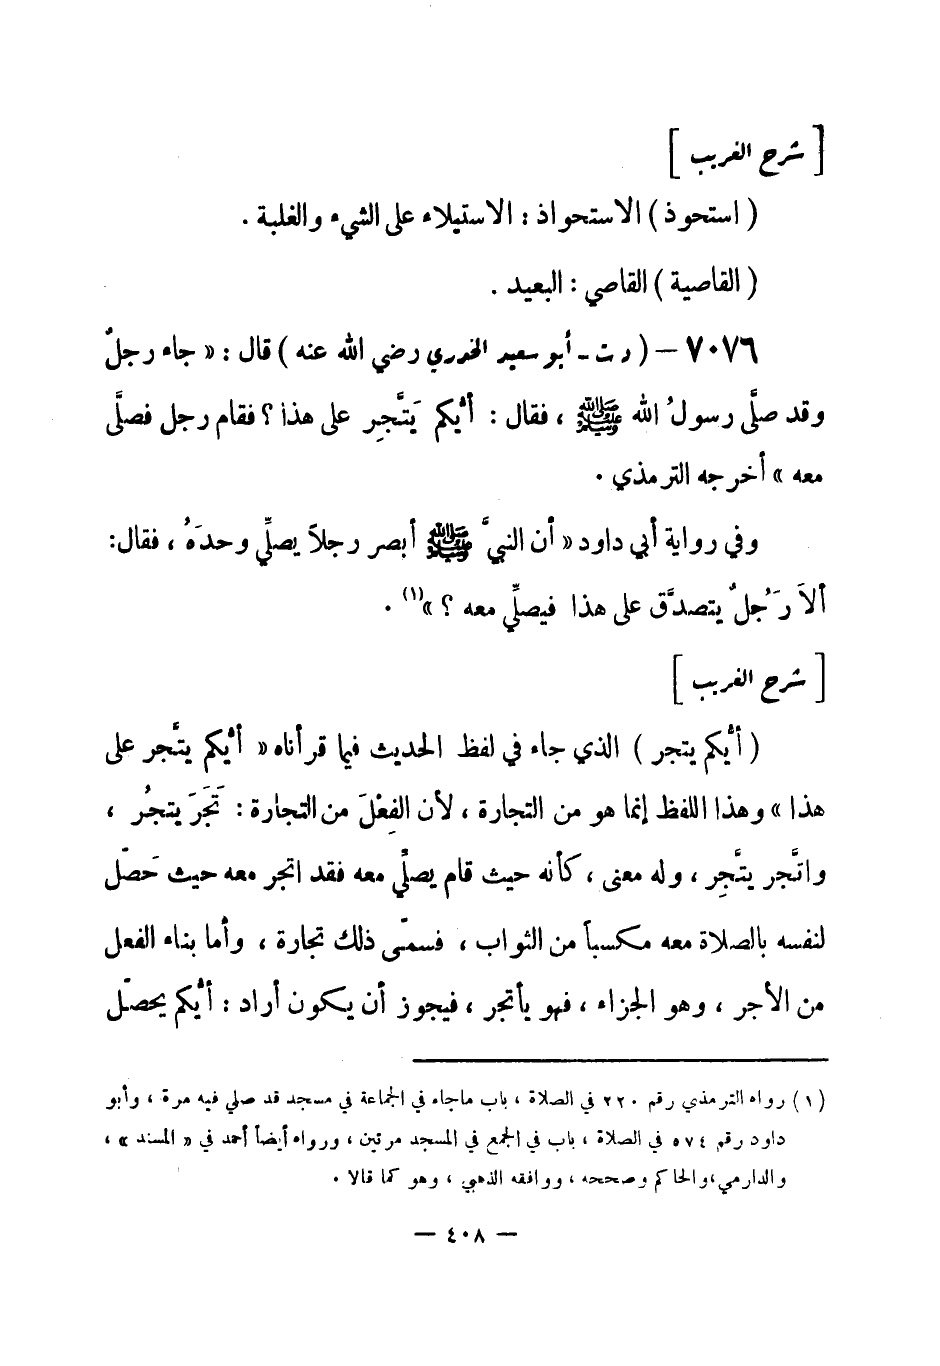 [ شرح الغريب ]
( استحوذ ) الاستحواذ : الاستيلاء على الشيء والغلبة .
( القاصية ) القاصي : البعيد .
٧٠٧٦ – ( د ت - أبو سعيد الخدري رضي الله عنه ) قال : « جاء رجلٌ
وقد صلَّى رسولُ الله ﷺ ، فقال : أيُّكم يَتَّجِر على هذا ؟ فقام رجل فصلَّى
معه » أخرجه الترمذي .
وفي رواية أبي داود « أن النبيَّ ﷺ أبصر رجلاً يصلِّي وحدَهُ ، فقال :
ألاَ رَجُلٌ يتصدَّق على هذا فيصلِّي معه ؟ »(١) .
[ شرح الغريب ]
( أيُّكم يتجر ) الذي جاء في لفظ الحديث فيما قرأناه « أيُّكم يتَّجر على
هذا » وهذا اللفظ إنما هو من التجارة ، لأن الفِعْلَ من التجارة : تَجَرَ يتجُر ،
واتَّجر يتَّجِر ، وله معنى ، كأنه حيث قام يصلِّي معه فقد اتجر معه حيث حَصّل
لنفسه بالصلاة معه مكسباً من الثواب ، فسمّى ذلك تجارة ، وأما بناء الفعل
من الأجر ، وهو الجزاء ، فهو يأتجر ، فيجوز أن يكون أراد : أيُّكم يحصّل
(١) رواه الترمذي رقم ٢٢٠ في الصلاة ، باب ماجاء في الجماعة في مسجد قد صلي فيه مرة ، وأبو
داود رقم ٥٧٤ في الصلاة ، باب في الجمع في المسجد مرتين ، ورواه أيضاً أحمد في « المسند » ،
والدارمي،والحاكم وصححه ، ووافقه الذهبي ، وهو كما قالا .
— ٤٠٨ —